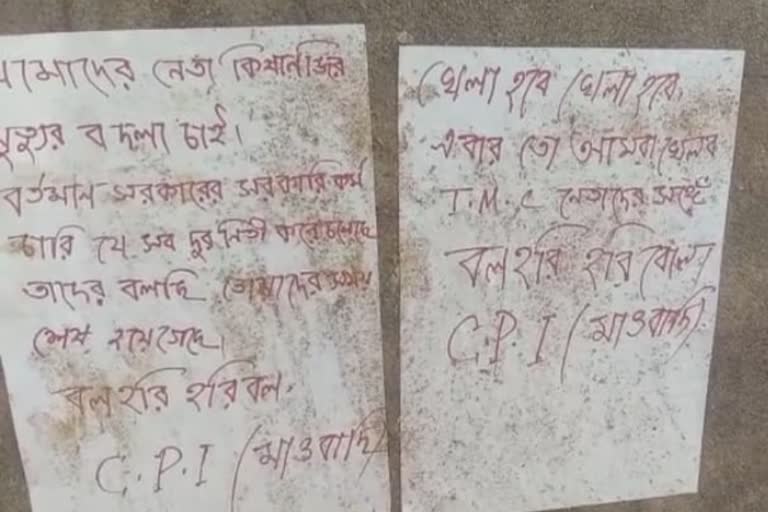 আমাদের নেতা কিষানজির
মৃত্যুর বদলা চাই।
বর্তমান সরকারের সরকারি কর্ম
চারি যে সব দুর্নিতী করে চলেছে
তাদের বলছি তোমাদের সময়
শেষ হয়ে গেছে।
বল হরি হরি বল।
C.P.I (মাওবাদি)
খেলা হবে খেলা হবে।
এবার তো আমরা খেলব
T.M.C নেতাদের সঙ্গে
বল হরি হরি বোল।
C.P.I (মাওবাদি)